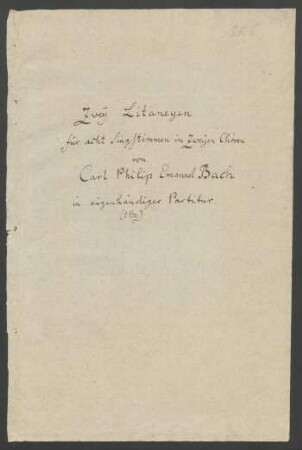 Zwey Litaneyen
für acht Singstimmen in zweyen Chören
von
Carl Philip Emanuel Bach
in eigenhändiger Partitur